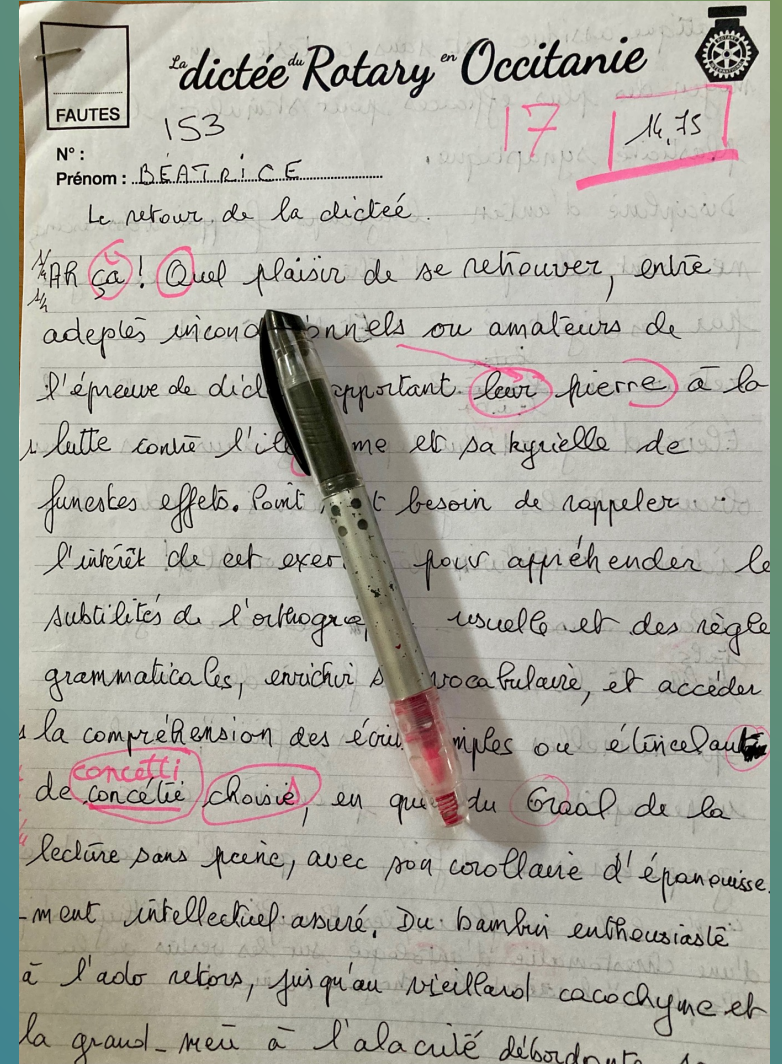 La dictée du Rotary en Occitanie
FAUTES
153
17
14,75
N° :
Prénom : BÉATRICE
Le retour de la dictée.
Ah ça ! Quel plaisir de se retrouver, entre
adeptes incond onnels ou amateurs de
l'épreuve de dict apportant leur pierre à la
lutte contre l'ile me et sa kyrielle de
funestes effets. Point t besoin de rappeler
l'intérêt de cet exer pour appréhender le
subtilités de l'orthogra usuelle et des règle
grammaticales, enrichir s vocabulaire, et accéder
la compréhension des écri mples ou étincelant
concetti
de concétie choisie, en qu du Graal de la
lecture sans peine, avec son corollaire d'épanouisse.
-ment intellectuel assuré. Du bambin enthousiaste
à l'ado retors, jusqu'au vieillard cacochyme et
la grand-mère à l'alacrité débordante